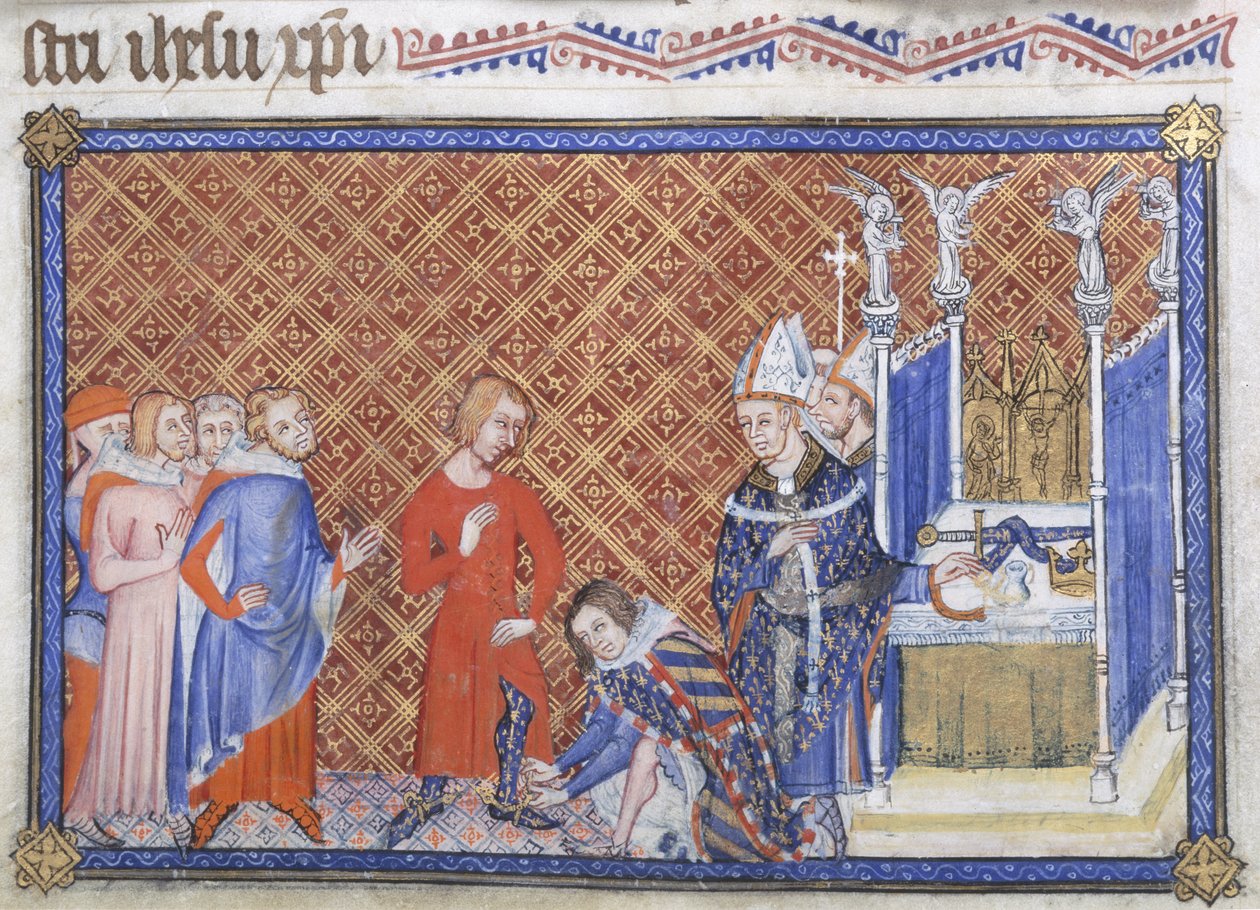 ſtri iheſu xp̄i